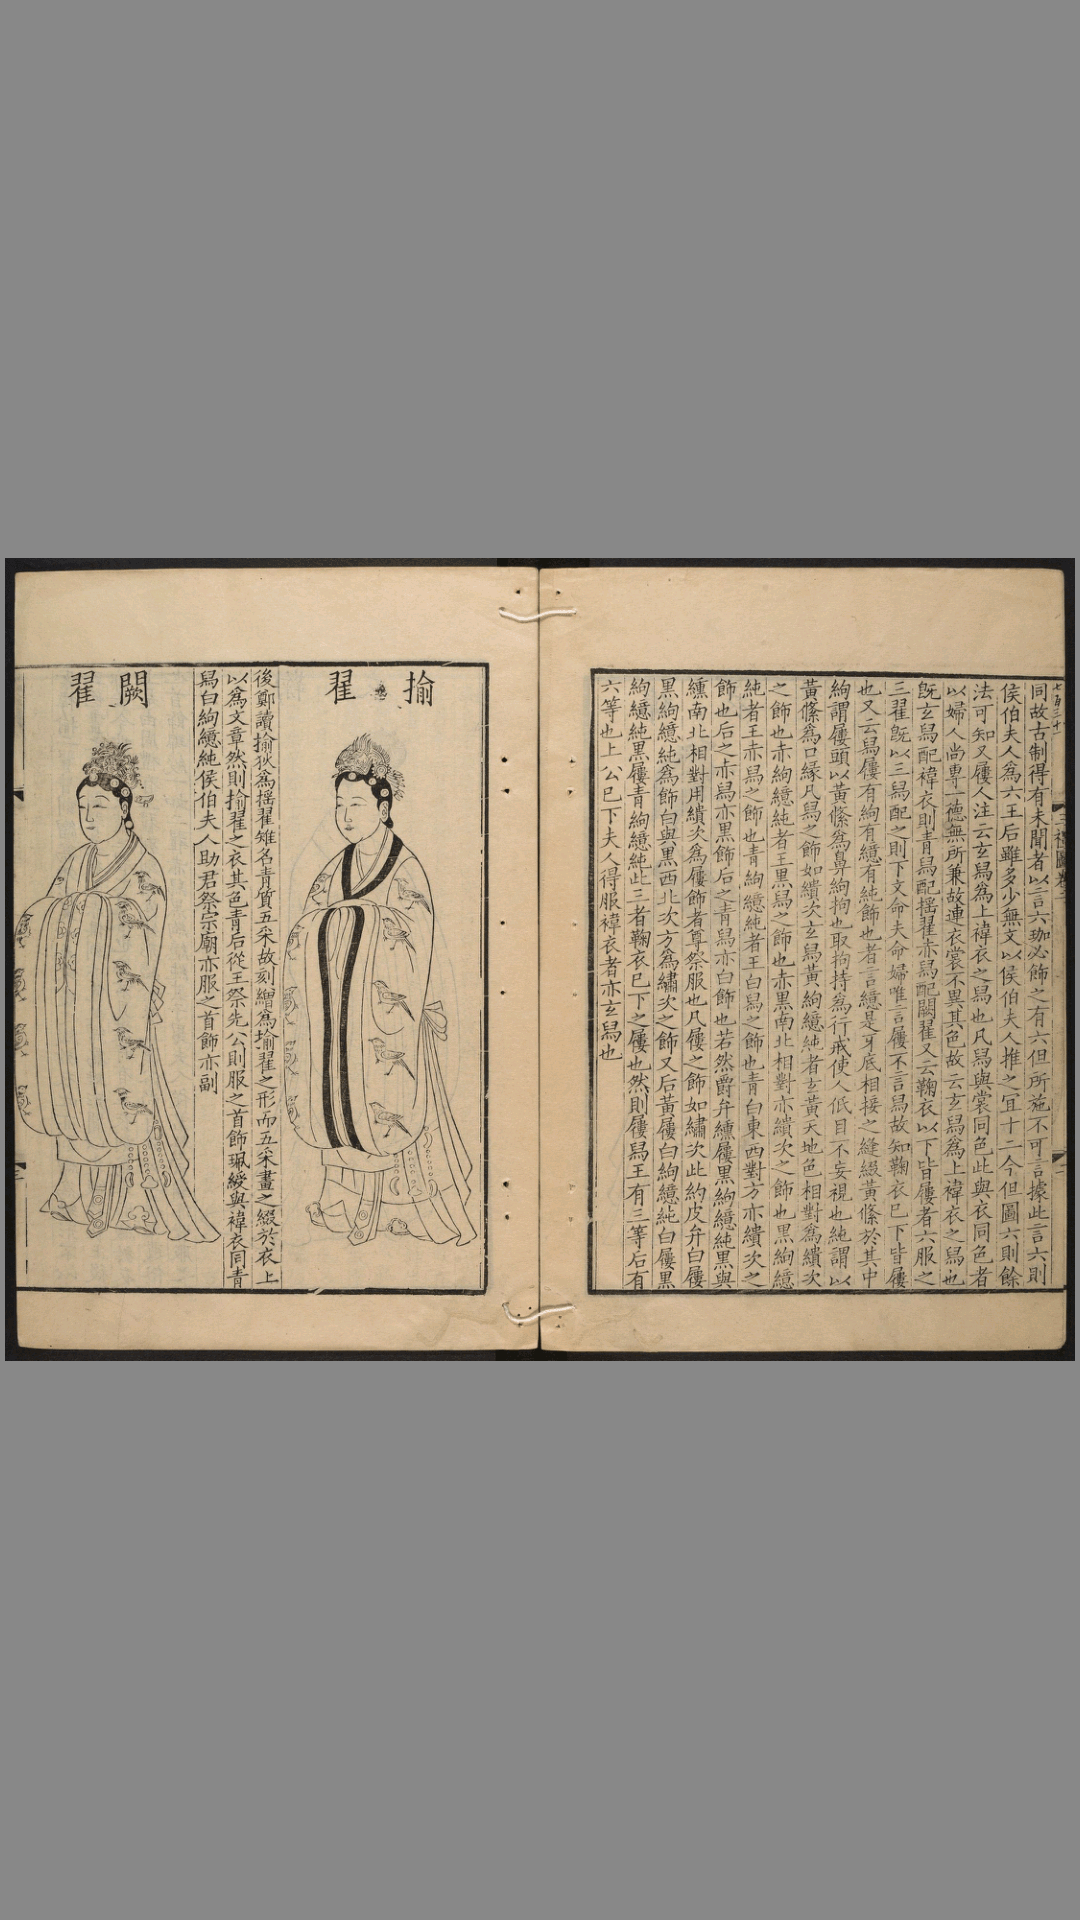 七百三十一
三禮圖卷二
同故古制得有未聞者以言六珈必飾之有六但所施不可言據此言六則
侯伯夫人爲六王后雖多少無文以侯伯夫人推之宜十二今但圖六則餘
法可知又屨人注云玄舄爲上褘衣之舄也凡舄與裳同色此與衣同色者
以婦人尚専一德無所兼故連衣裳不異其色故云玄舄爲上褘衣之舄也
旣玄舄配褘衣則青舄配揺翟赤舄配闕翟又云鞠衣以下皆屨者六服之
三翟旣以三舄配之則下文命夫命婦唯言屨不言舄故知鞠衣已下皆屨
也又云舄屨有絇有繶有純飾也者言繶是牙底相接之縫綴黃絛於其中
絇謂屨頭以黃絛爲鼻絇拘也取拘持爲行戒使人低目不妄視也純謂以
黃絛爲口緣凡舄之飾如繢次玄舄黃絇繶純者玄黃天地色相對爲繢次
之飾也赤絇繶純者王黒舄之飾也赤黒南北相對亦繢次之飾也黒絇繶
純者王赤舄之飾也青絇繶純者王白舄之飾也青白東西對方亦繢次之
飾也后之赤舄亦黒飾后之青舄亦白飾也若然爵弁纁屨黒絇繶純黒與
纁南北相對用繢次爲屨飾者尊祭服也凡屨之飾如繡次此約皮弁白屨
黒絇繶純爲飾白與黒西北次方爲繡次之飾又后黃屨白絇繶純白屨黒
絇繶純黒屨青絇繶純此三者鞠衣已下之屨也然則屨舄王有三等后有
六等也上公已下夫人得服褘衣者亦玄舄也
揄翟
後鄭讀揄狄爲揺翟雉名青質五采故刻繒爲揄翟之形而五采畫之綴於衣上
以爲文章然則揄翟之衣其色青后從王祭先公則服之首飾珮綬與褘衣同青
舄白絇繶純侯伯夫人助君祭宗廟亦服之首飾亦副
闕翟